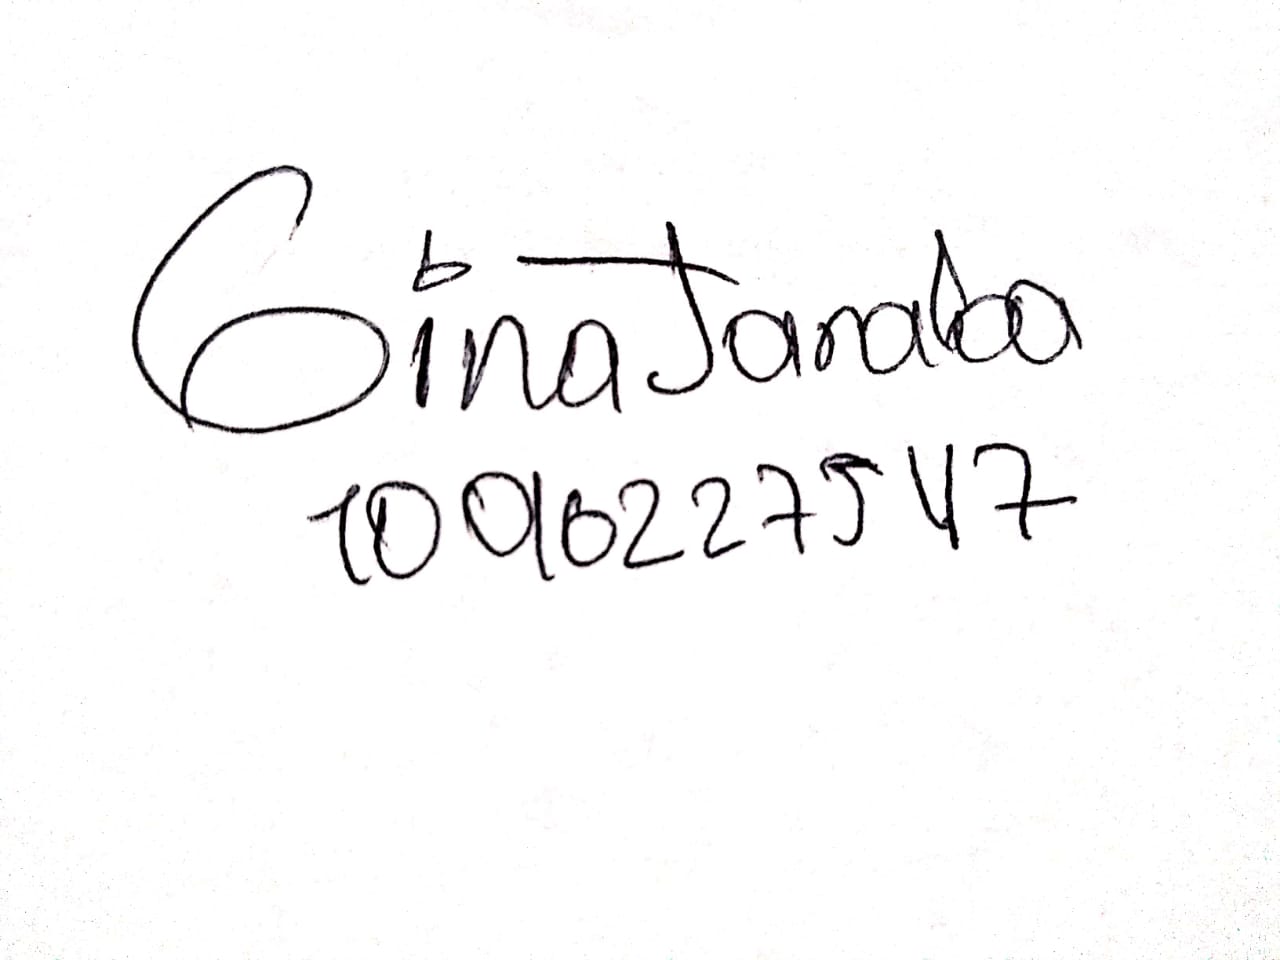 Gina Jaraba
10016227547